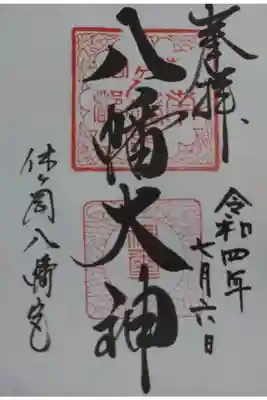 奉拝、
令和四年
七月六日
八幡大神
休ヶ岡八幡宮